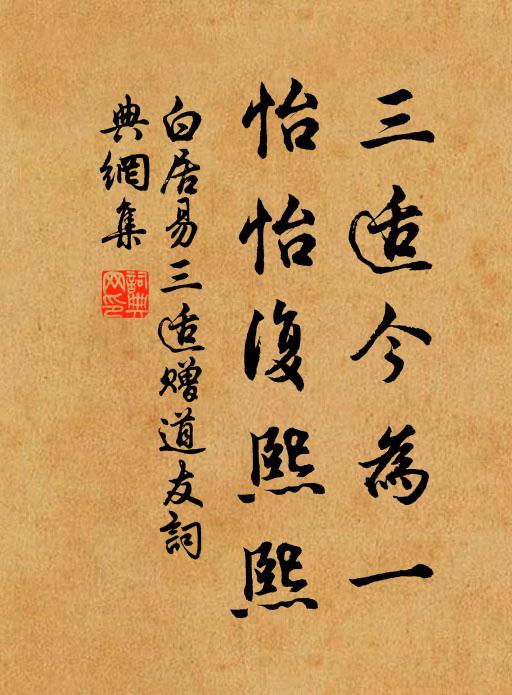 三适今為一
怡怡復熙熙
白居易三适赠道友詞
典網集
詞典
网印